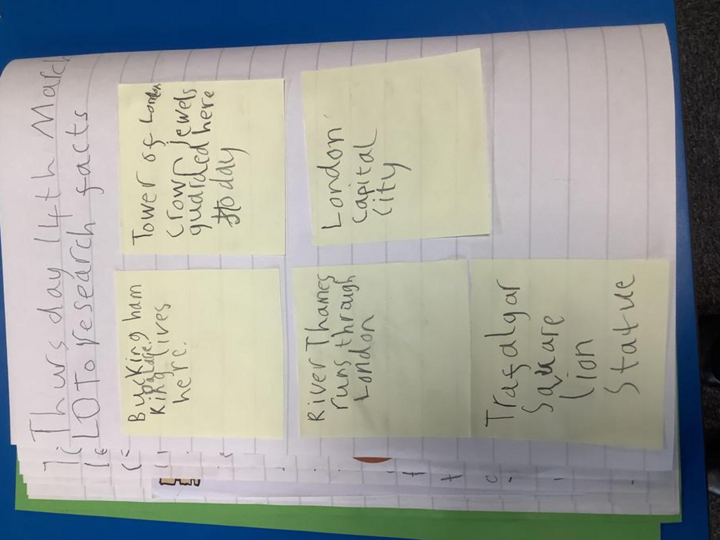 Thursday 14th March
LO To research facts
Buckingham
Palace.
King lives
here.
Tower of London
Crown jewels
guarded here
today
River Thames
runs through
London
London
Capital
City
Trafalgar
Square
lion
Statue